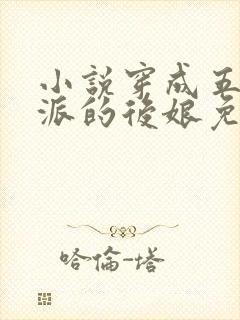 小説穿成五
派的後娘免
哈倫-塔